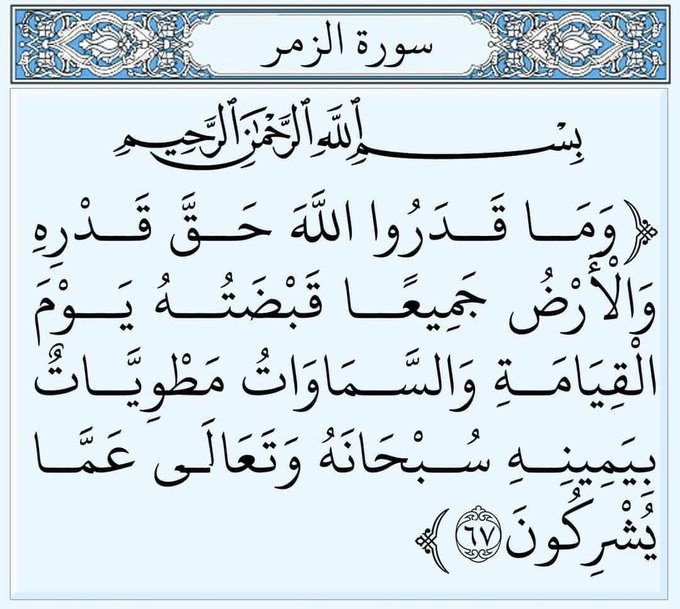 سورة الزمر
بِسْمِ ٱللَّهِ ٱلرَّحْمَٰنِ ٱلرَّحِيمِ
﴿وَمَا قَدَرُوا اللَّهَ حَقَّ قَدْرِهِ
وَالْأَرْضُ جَمِيعًا قَبْضَتُهُ يَوْمَ
الْقِيَامَةِ وَالسَّمَاوَاتُ مَطْوِيَّاتٌ
بِيَمِينِهِ سُبْحَانَهُ وَتَعَالَى عَمَّا
يُشْرِكُونَ ٦٧﴾